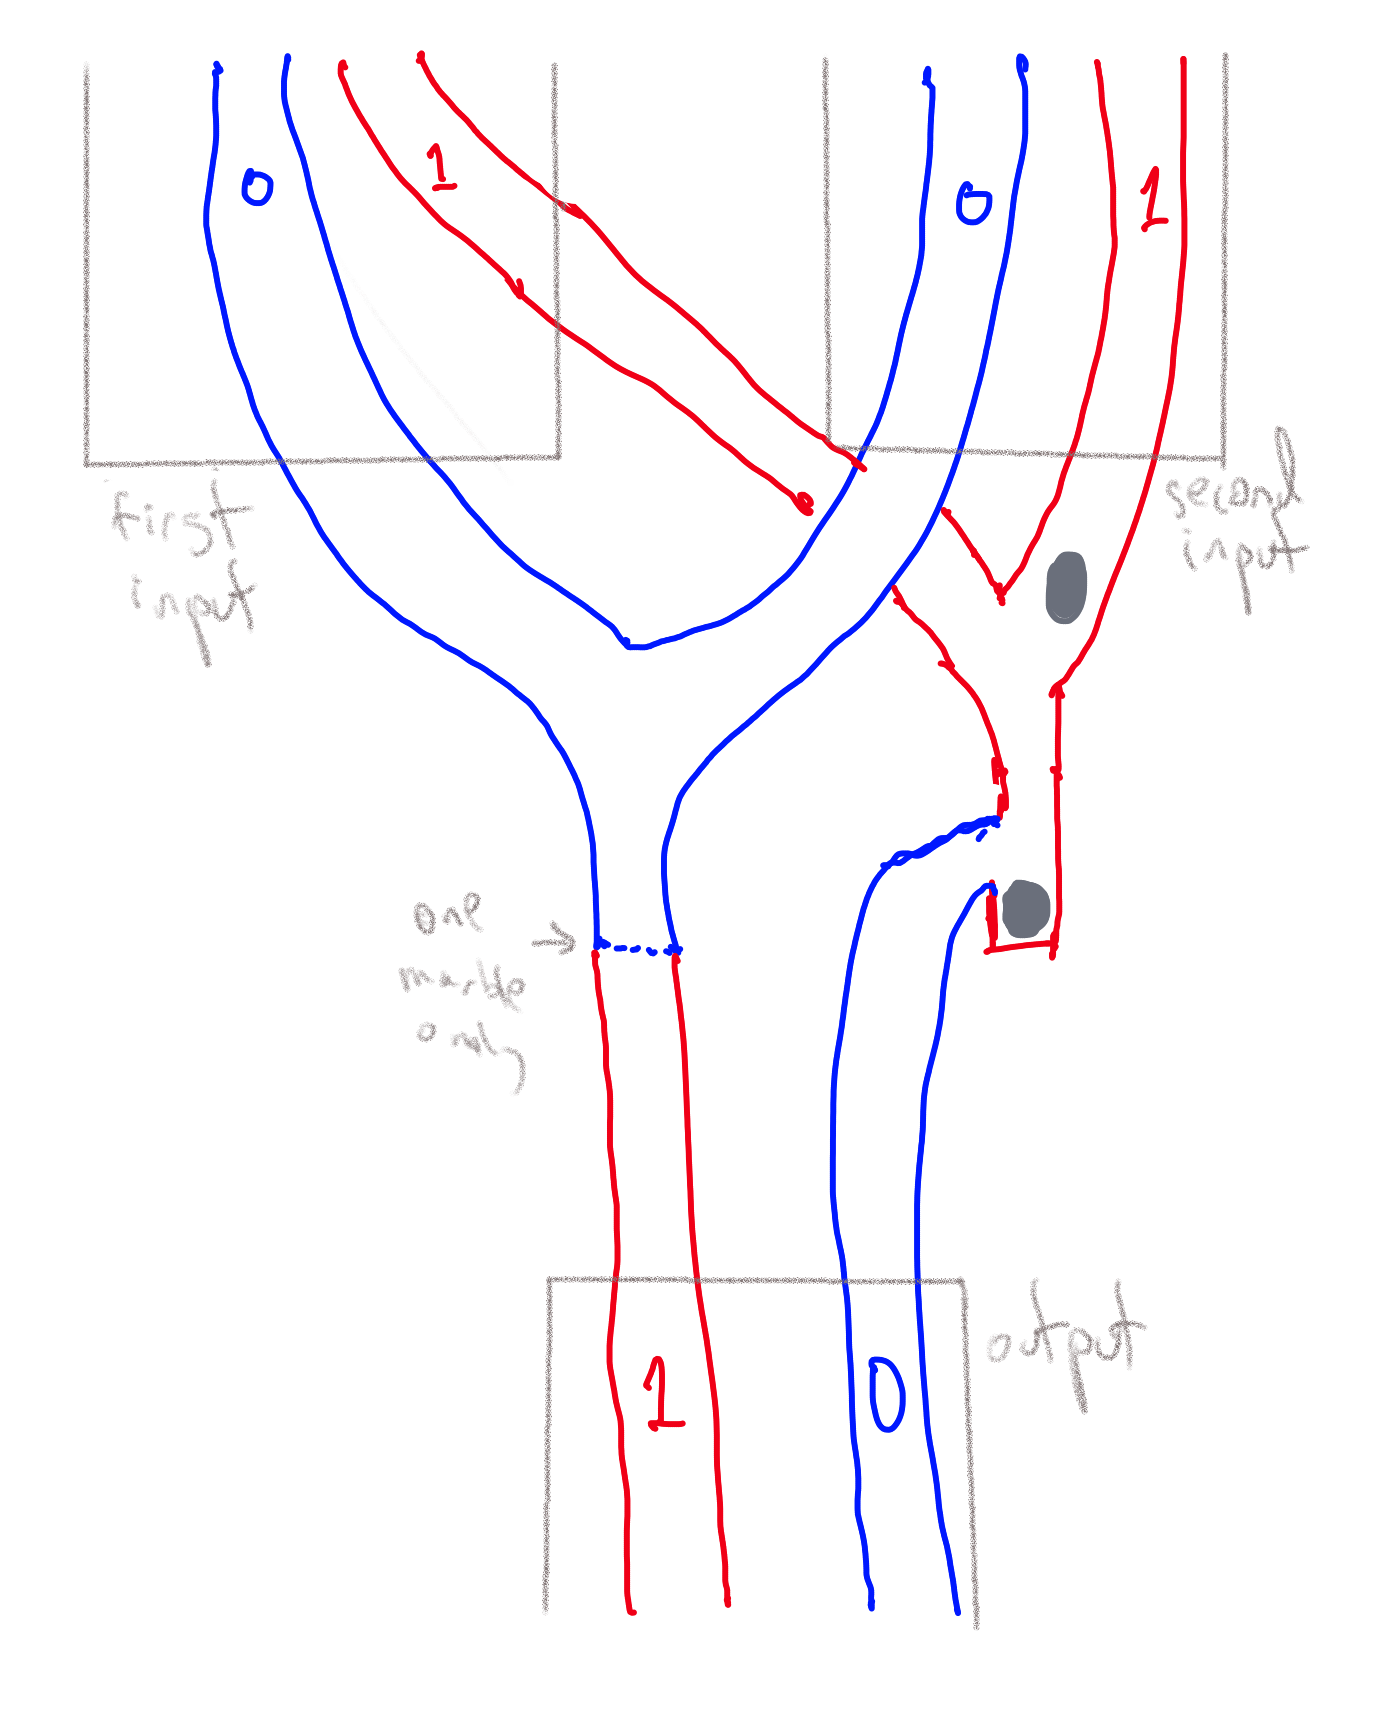 0
1
0
1
first
input
second
input
one
marble
only
output
1
0